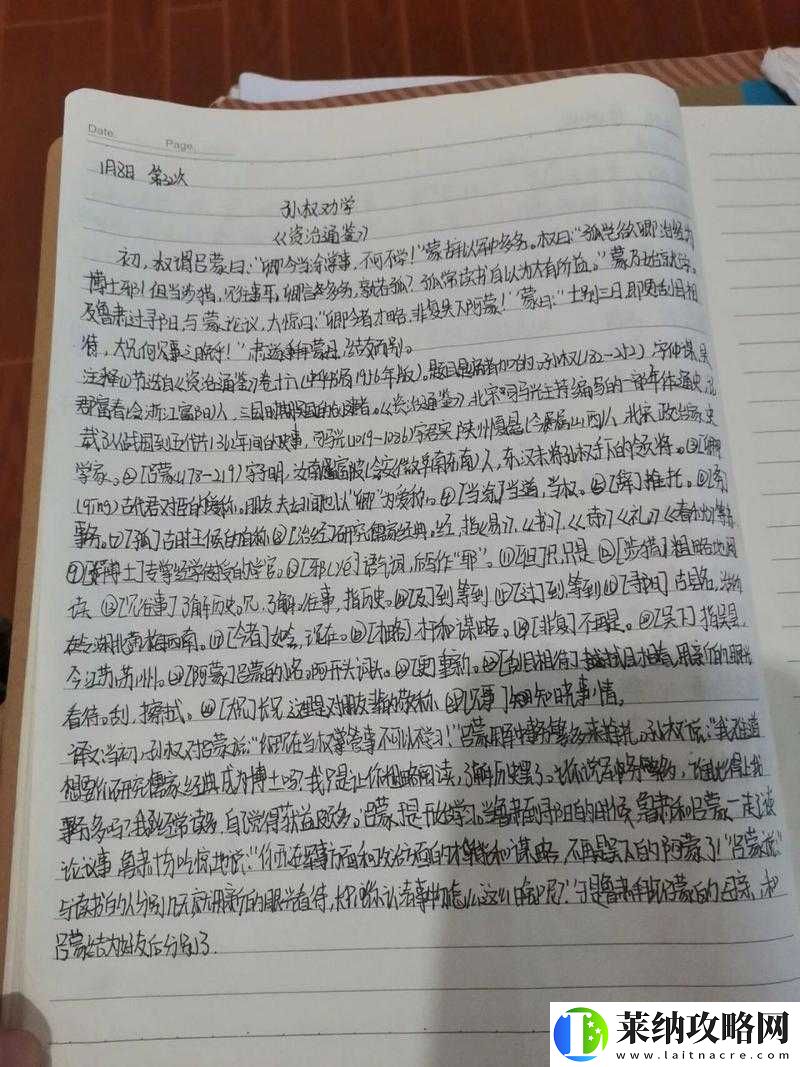 Date.
Page.
1月8日 第32次
孙权劝学
《资治通鉴》
初，权谓吕蒙曰："卿今当涂掌事，不可不学！"蒙辞以军中多务。权曰："孤岂欲卿治经为
博士邪！但当涉猎，见往事耳。卿言多务，孰若孤？孤常读书，自以为大有所益。"蒙乃始就学。
及鲁肃过寻阳，与蒙论议，大惊曰："卿今者才略，非复吴下阿蒙！"蒙曰："士别三日，即更刮目相
待，大兄何见事之晚乎！"肃遂拜蒙母，结友而别。
注释①节选自《资治通鉴》卷六十六(中华书局1956年版)。题目是编者加的。孙权(182-252)字仲谋，吴
郡富春(今浙江富阳)人，三国时期吴国的创建者。《资治通鉴》，北宋司马光主持编写的一部编年体通史，记
载了从战国到五代共1362年间的史事，司马光(1019-1086)字君实 陕州夏县(今属山西)人，北宋政治家史
学家。②[吕蒙](178-219)字子明，汝南富陂(今安徽阜南东南)人，东汉末将孙权手下的将领。③[卿]
(qīng)古代君对臣的爱称。朋友、夫妻间也以"卿"为爱称。④[当涂]当道，当权。⑤[辞]推托。⑥[务]
事务。⑦[孤]古时王侯的自称⑧[治经]研究儒家经典。经，指《易》《书》《诗》《礼》《春秋》等书
⑨[博士]专掌经学传授的学官。⑩[邪](yé)语气词，后写作"耶"。⑪[但]只，只是⑫[涉猎]粗略地阅
读 ⑬[见往事]了解历史。见，了解。往事，指历史。⑭[及]到，等到⑮[过]到，等到⑯[寻阳]古县名，治所
在今湖北黄梅西南。⑰[今者]如今，现在。⑱[才略]才干和谋略。⑲[非复]不再是。⑳[吴下]指吴县，
今江苏苏州。[阿蒙]吕蒙的小名。阿开头词头。[更]重新。[刮目相待]拭目相看，用新的眼光
看待。刮，擦拭。[大兄]长兄，这里是对朋友辈的敬称 [见事]知晓事情。
译文：当初，孙权对吕蒙说："你现在当权掌管事不可以不学习！"吕蒙用军中事务繁多来推托。孙权说："我难道
想要你研究儒家经典成为博士吗？我只是让你粗略阅读，了解历史罢了。你说军中事务繁多，谁比得上我
事务多吗？我经常读书，自己觉得获益颇多。"吕蒙于是开始学习。当鲁肃到寻阳的时候，鲁肃和吕蒙一起谈
论议事，鲁肃十分吃惊地说："你现在军事方面和政治方面的才能和谋略，不再是吴下的阿蒙了！"吕蒙说："
与读书的人分别几天就用新的眼光看待，长兄你认清事物怎么这么晚呢？"于是鲁肃拜见吕蒙的母亲，和
吕蒙结为好友后分别了.
莱纳攻略网
www.laitnacre.com